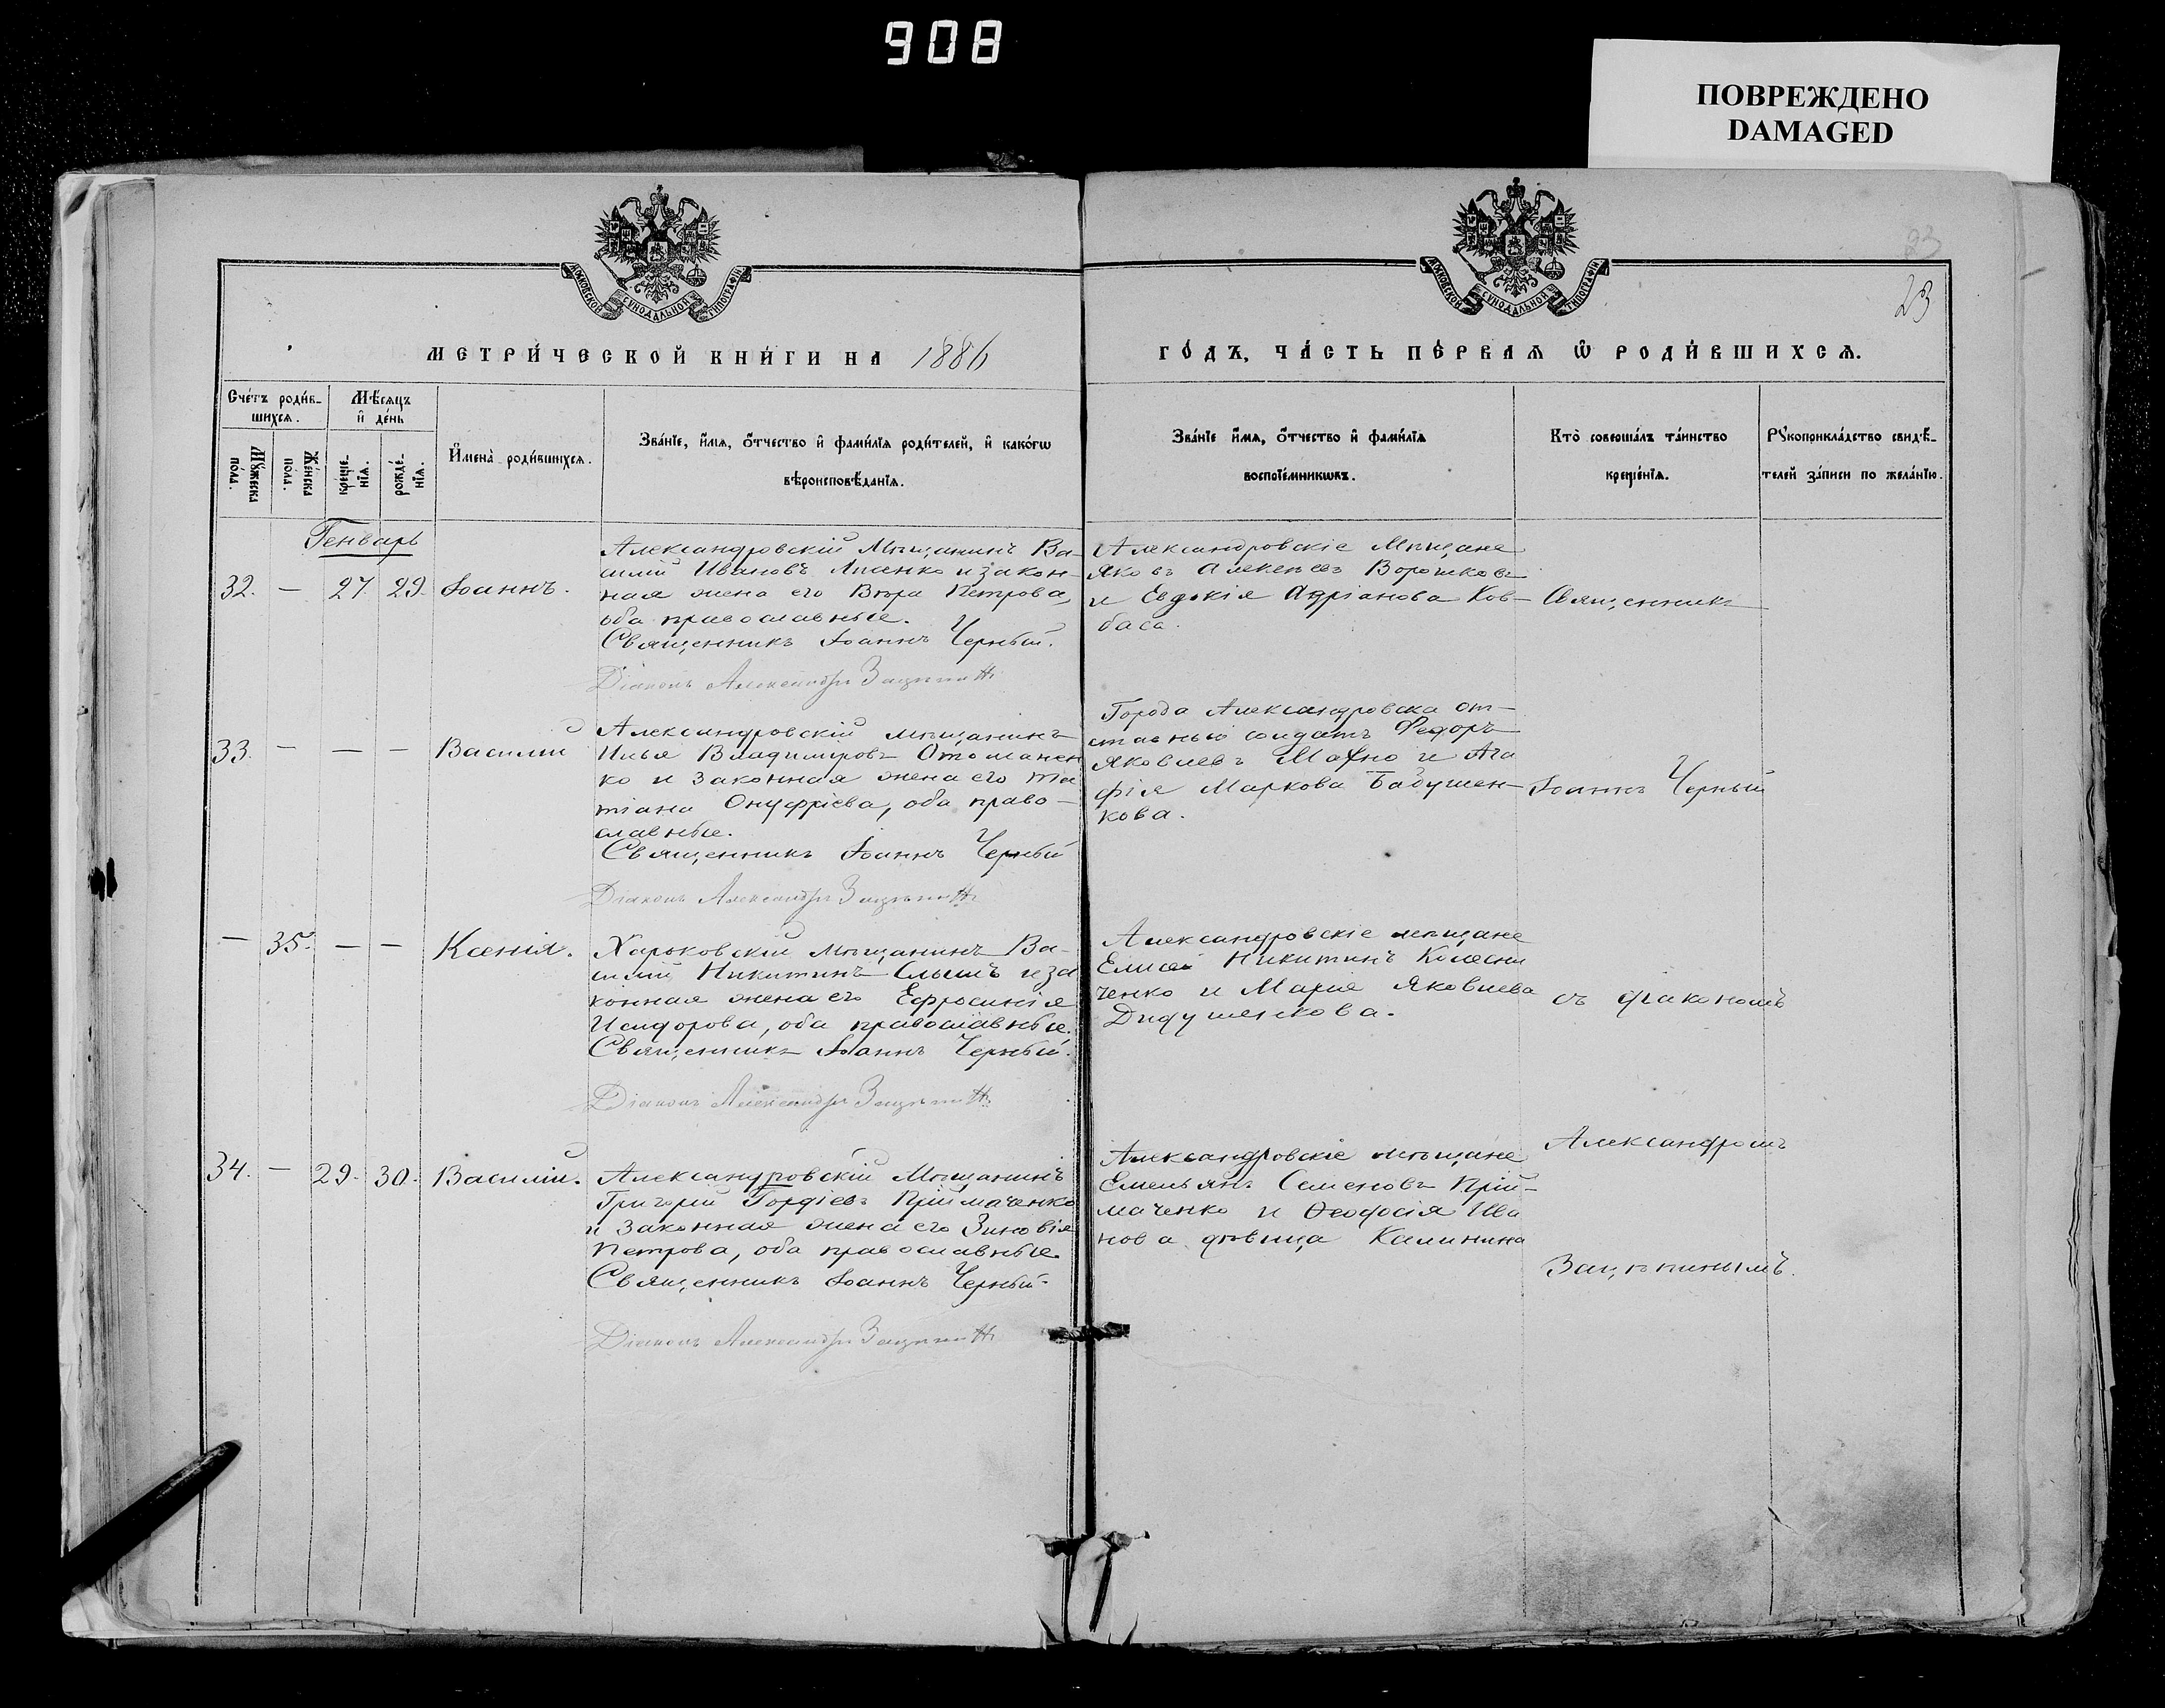 908
ПОВРЕЖДЕНО
DAMAGED
МОСКОВСКОЙ СУНОДАЛЬНОЙ ТИПОГРАФІИ
МОСКОВСКОЙ СУНОДАЛЬНОЙ ТИПОГРАФІИ
23
23
МЕТРИ́ЧЕСКОЙ КНИ́ГИ НА 1886
ГО́ДЪ, ЧА́СТЬ ПЕ́РВАЯ Ѿ РОДИ́ВШИХСЯ.
Сче́тъ роди́в-
шихся.
Мѣ́сяцъ
и де́нь
Мꙋ́жеска
по́ла.
Же́нска
по́ла.
креще́-
нїя.
рожде́-
нїя.
Имена̀ роди́вшихся.
Зва́нїе, и́мя, ѻ́тчество и фами́лїя роди́телей, и како́гѡ
вѣроисповѣ́данїя.
Зва́нїе и́мя, ѻ́тчество и фами́лїя
воспрїе́мникѡвъ.
Кто̀ соверша́лъ та́инство
креще́нїя.
Рꙋкоприкла́дство свидѣ́-
телей за́писи по жела́нїю.
Генварь
32. — 27 29. Іоаннъ.
Александровскій Мѣщанинъ Ва-
силій Ивановъ Лисенко и закон-
ная жена его Вѣра Петрова,
оба православные.
Священникъ Іоаннъ Черный.
Діаконъ Александръ Защѣпинъ
Александровскіе Мѣщане
Яковъ Алексѣевъ Ворошковъ
и Евдокія Адріанова Ков-
баса.
Священникъ
33. — — — Василій
Александровскій мѣщанинъ
Илья Владиміровъ Отоманен
ко и законная жена его Та
тіана Онуфріева, оба право-
славные.
Священникъ Іоаннъ Черный
Діаконъ Александръ Защѣпинъ
Города Александровска от-
ставный солдатъ Федоръ
Яковлевъ Махно и Ага
фія Маркова Бабушен-
кова.
Іоаннъ Черный
— 35. — — Ксенія.
Харьковскій мѣщанинъ Ва-
силій Никитинъ Слышъ и за
конная жена его Ефросинія
Исидорова, оба православные.
Священникъ Іоаннъ Черный.
Діаконъ Александръ Защѣпинъ
Александровскіе мѣщане
Елисей Никитинъ Колесни
ченко и Марія Яковлева
Дидушенкова.
съ діакономъ
34. — 29. 30. Василій.
Александровскій Мѣщанинъ
Григорій Гордіевъ Прійма́ченко
и законная жена его Зиновія
Петрова, оба православные.
Священникъ Іоаннъ Черный.
Діаконъ Александръ Защѣпинъ
Александровскіе мѣщане
Емельянъ Семеновъ Прій-
маченко и Ѳеодосія Ива
нова дѣвица Калинина
Александромъ
Защѣпинымъ.